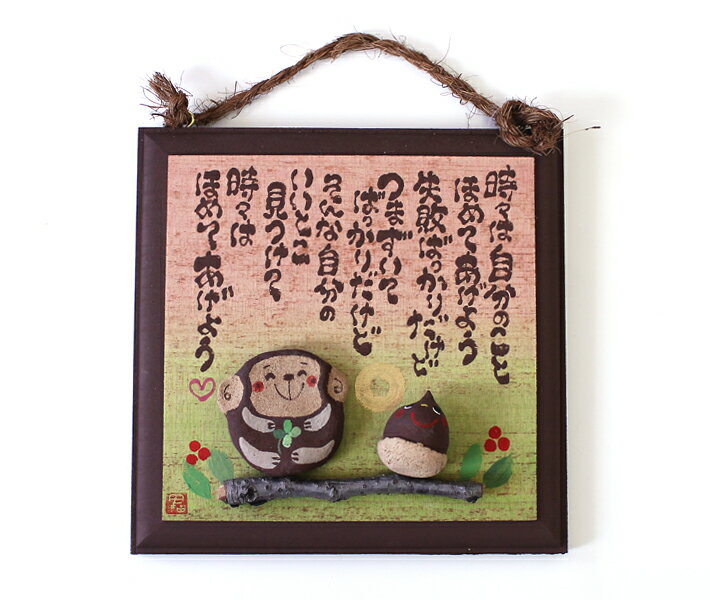 時々は自分のこと
ほめてあげよう
失敗ばっかりだけど
つまずいて
ばっかりだけど
そんな自分の
いいとこ
見つけて
時々は
ほめてあげよう